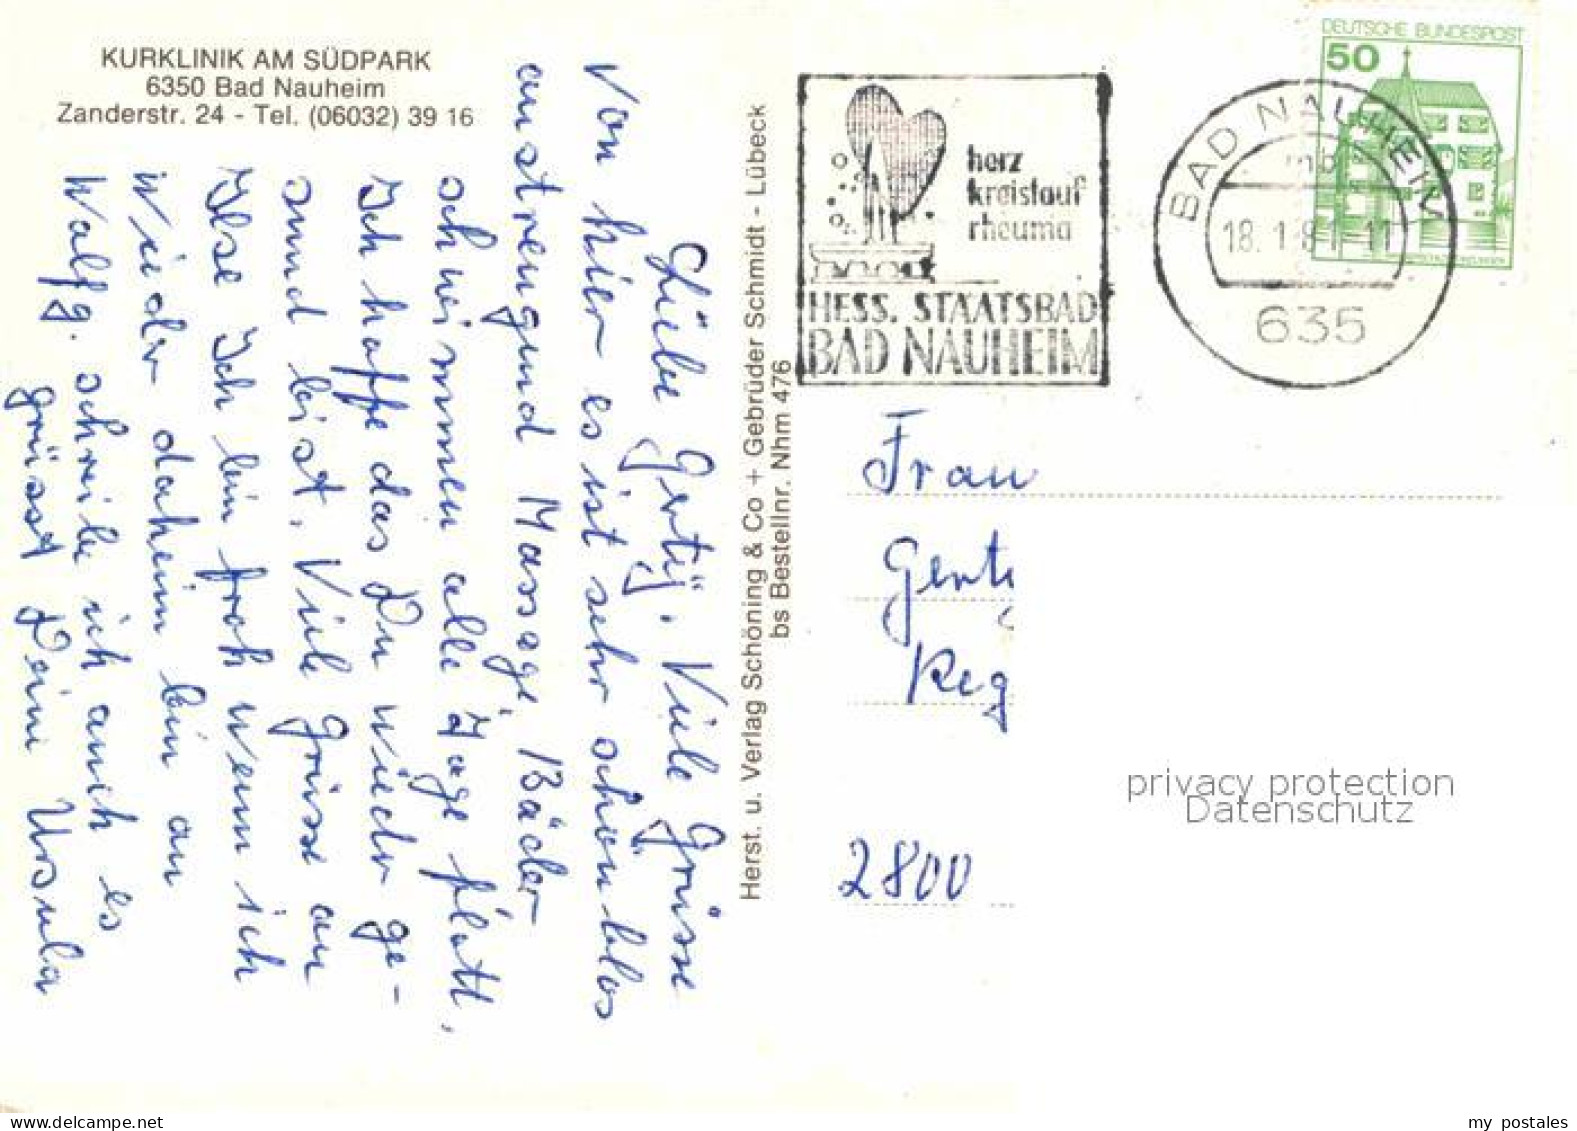 KURKLINIK AM SÜDPARK
6350 Bad Nauheim
Zanderstr. 24 - Tel. (06032) 39 16
Liebe Gertÿ. Viele Grüsse
Von hier es ist sehr schön blos
anstrengund Massage, Bäder
schwimmen alle Tage flott,
Ich hoffe das Du wieder ge-
sund bist. Viele Grüsse an
Ilse Ich bin froh wenn ich
wieder daheim bin an
Walfg. schreibe ich auch es
grüsst Deine Ursula
Herst. u. Verlag Schöning & Co + Gebrüder Schmidt - Lübeck
bs Bestellnr. Nhm 476
herz
kreislauf
rheuma
HESS. STAATSBAD
BAD NAUHEIM
BAD NAUHEIM
mb
18. 1. 81 - 11
635
DEUTSCHE BUNDESPOST
50
Frau
Gert
Reg
2800
privacy protection
Datenschutz
my postales